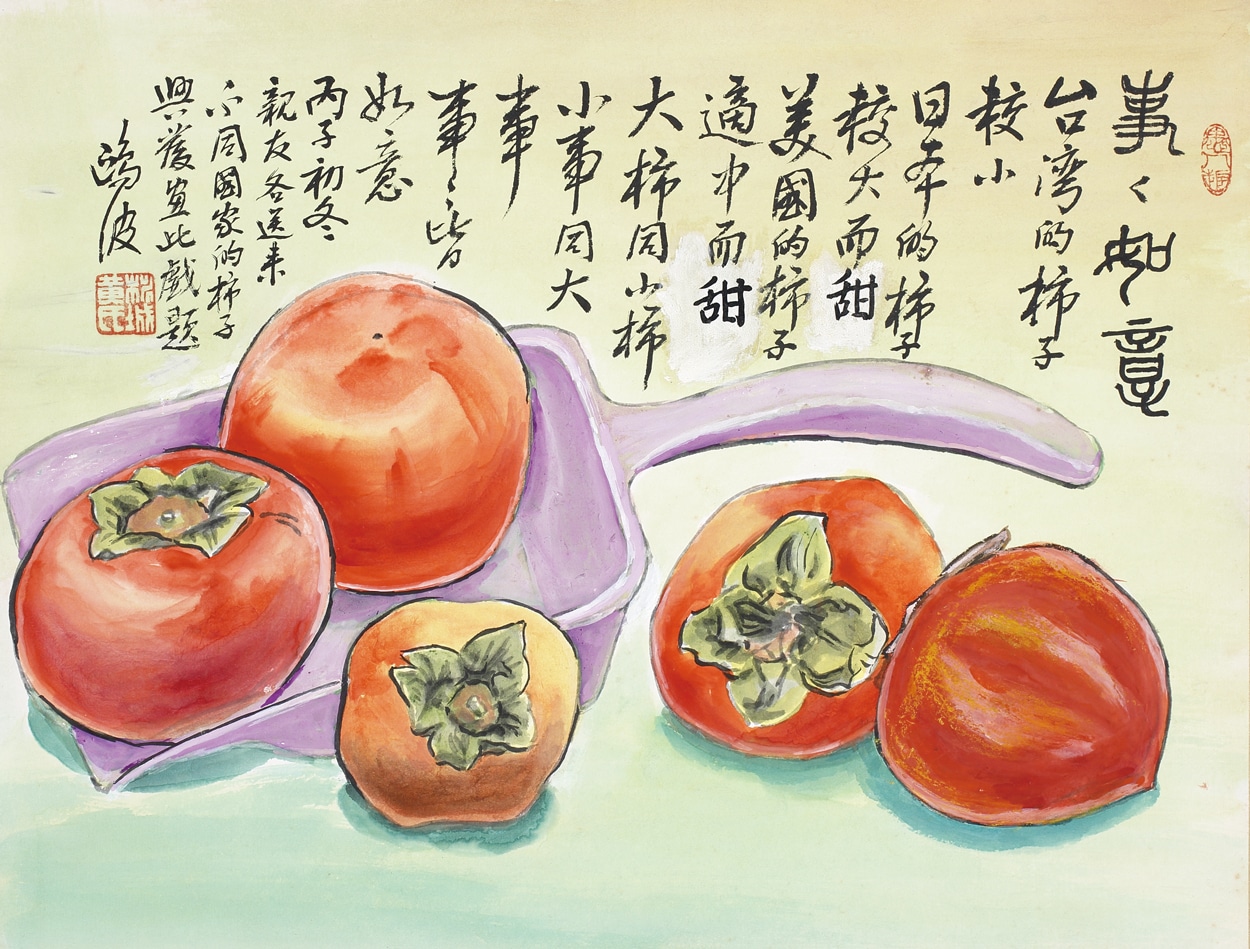 事々如意
台湾的柿子
較小
日本的柿子
較大而甜
美國的柿子
適中而甜
大柿同小柿
小事同大
事
事々皆
如意
丙子初冬
親友各送来
不同國家的柿子
興發畫此戲題
鷗波